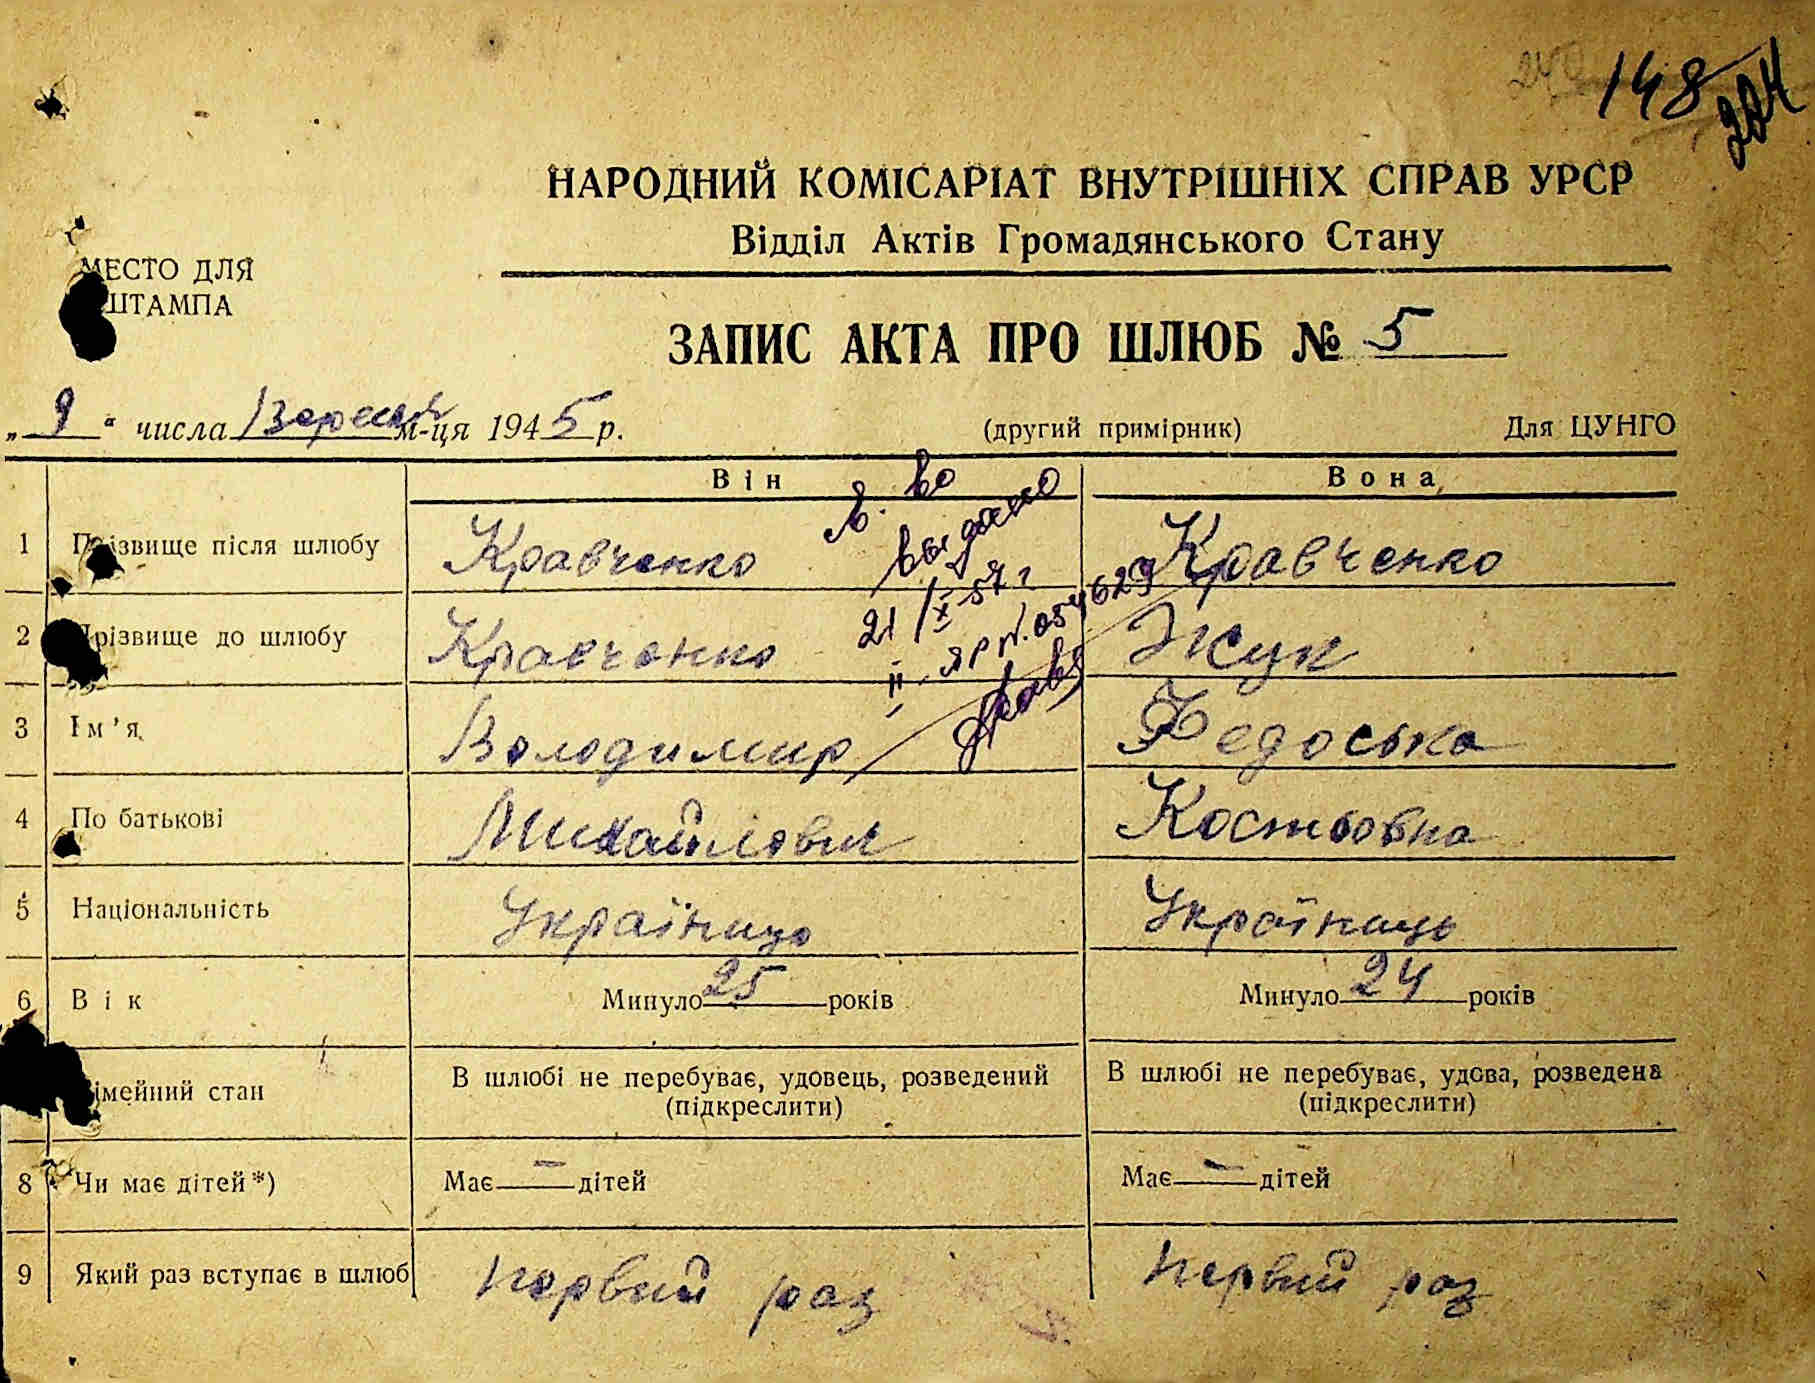 148
224
НАРОДНИЙ КОМІСАРІАТ ВНУТРІШНІХ СПРАВ УРСР
Відділ Актів Громадянського Стану
МЕСТО ДЛЯ
ШТАМПА
ЗАПИС АКТА ПРО ШЛЮБ № 5
„9“ числа Вересня м-ця 1945 р. (другий примірник) Для ЦУНГО
Він Вона
1 Прізвище після шлюбу Кравченко Кравченко
2 Прізвище до шлюбу Кравченко Жук
3 Ім’я Володимир Федоська
4 По батькові Михайлович Костьовна
5 Національність Українець Українець
6 Вік Минуло 25 років Минуло 24 років
імейний стан В шлюбі не перебуває, удовець, розведений (підкреслити) В шлюбі не перебуває, удова, розведена (підкреслити)
8 Чи має дітей*) Має — дітей Має — дітей
9 Який раз вступає в шлюб первий раз первий раз
с. во
выдано
21/X-57 г
II-ЯР №. 054629